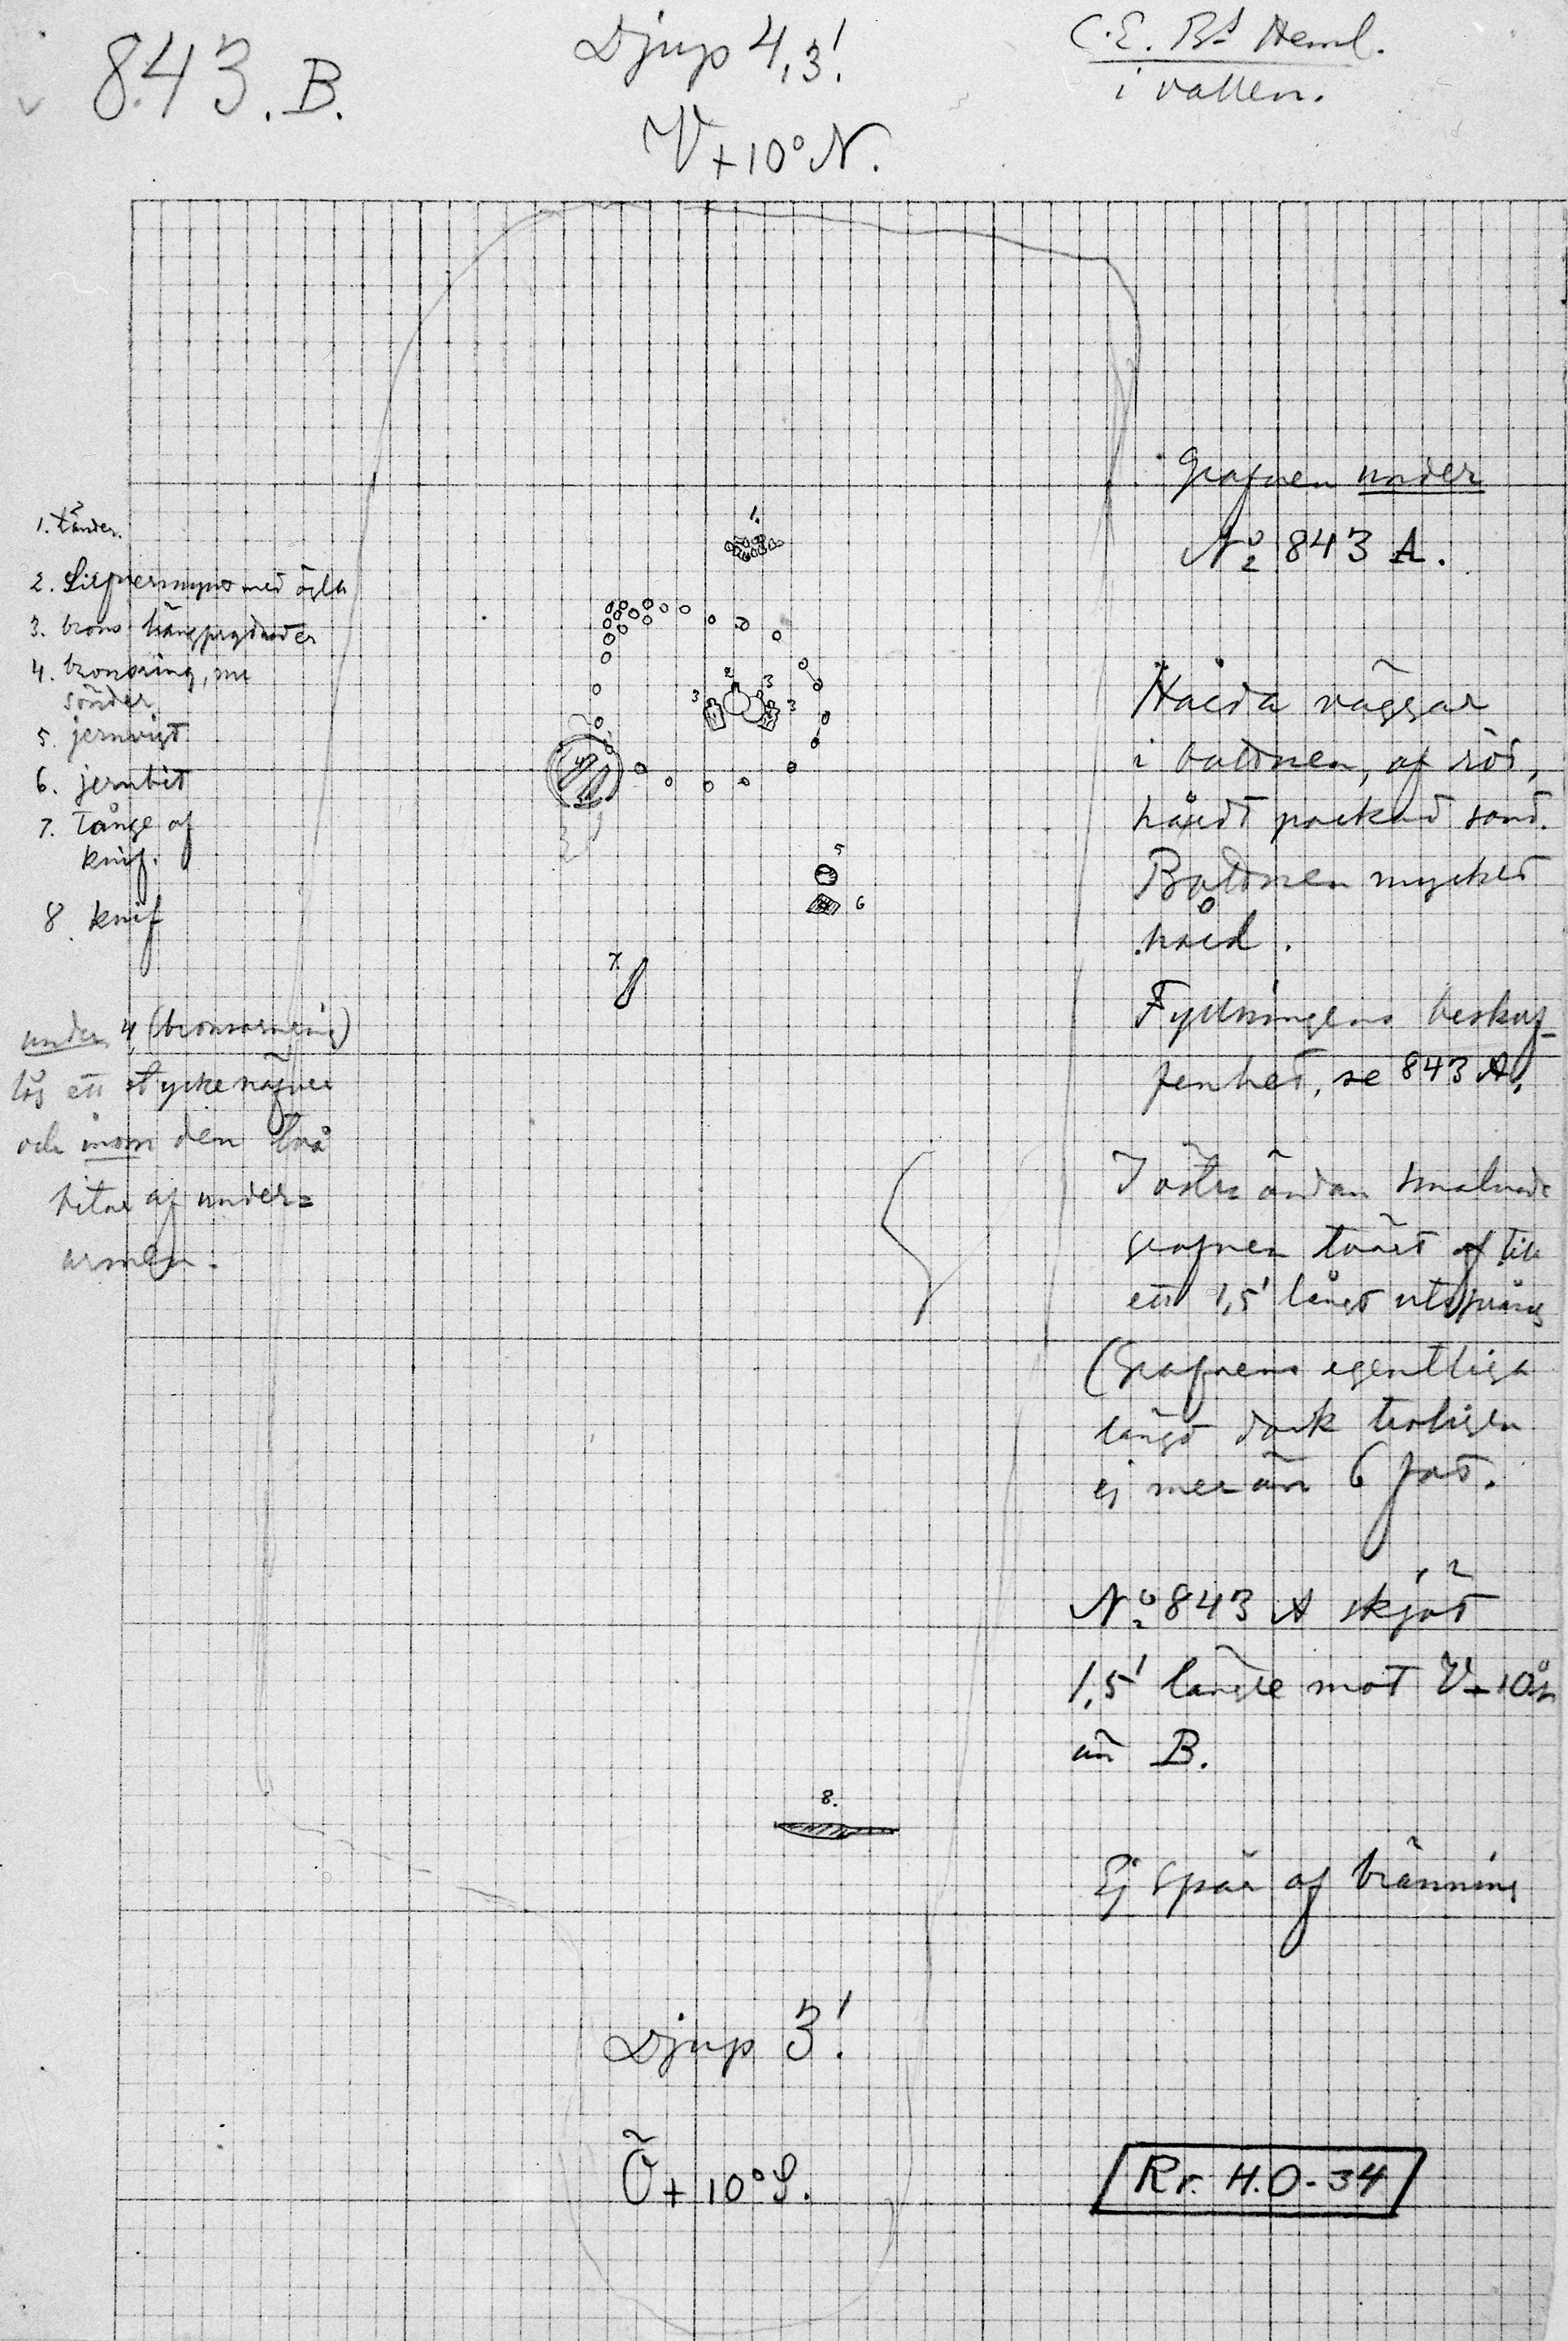 843.B.
Djup 4,3'.
V+10° N.
C.E. Bs Heml.
i vallen.
1. tänder.
2. Silfvermynt med ögla
3. brons hängprydnader
4. bronsring, nu
sönder
5. jernvigt
6. jernbit
7. Tånge af
knif.
8. knif
under 4 (bronsarmring)
låg ett stycke näfver
och inom den två
bitar af under=
armen.
1.
2
3
3
3
4
5
6
7.
8.
Grafven under
No 843 A.
Hårda väggar
i bottnen, af röd,
hårdt packad sand.
Bottnen mycket
hård.
Fyllningens beskaf-
fenhet, se 843 A.
I östra ändan smalnade
grafven tvärt af till
ett 1,5' långt utsprång
(Grafvens egentliga
längd dock troligen
ej mer än 6 fot.
No 843 A sköt
1,5' längre mot V+10°N
än B.
Ej spår af bränning
Djup 3'.
Ö+10°S.
Rr. H.O-34